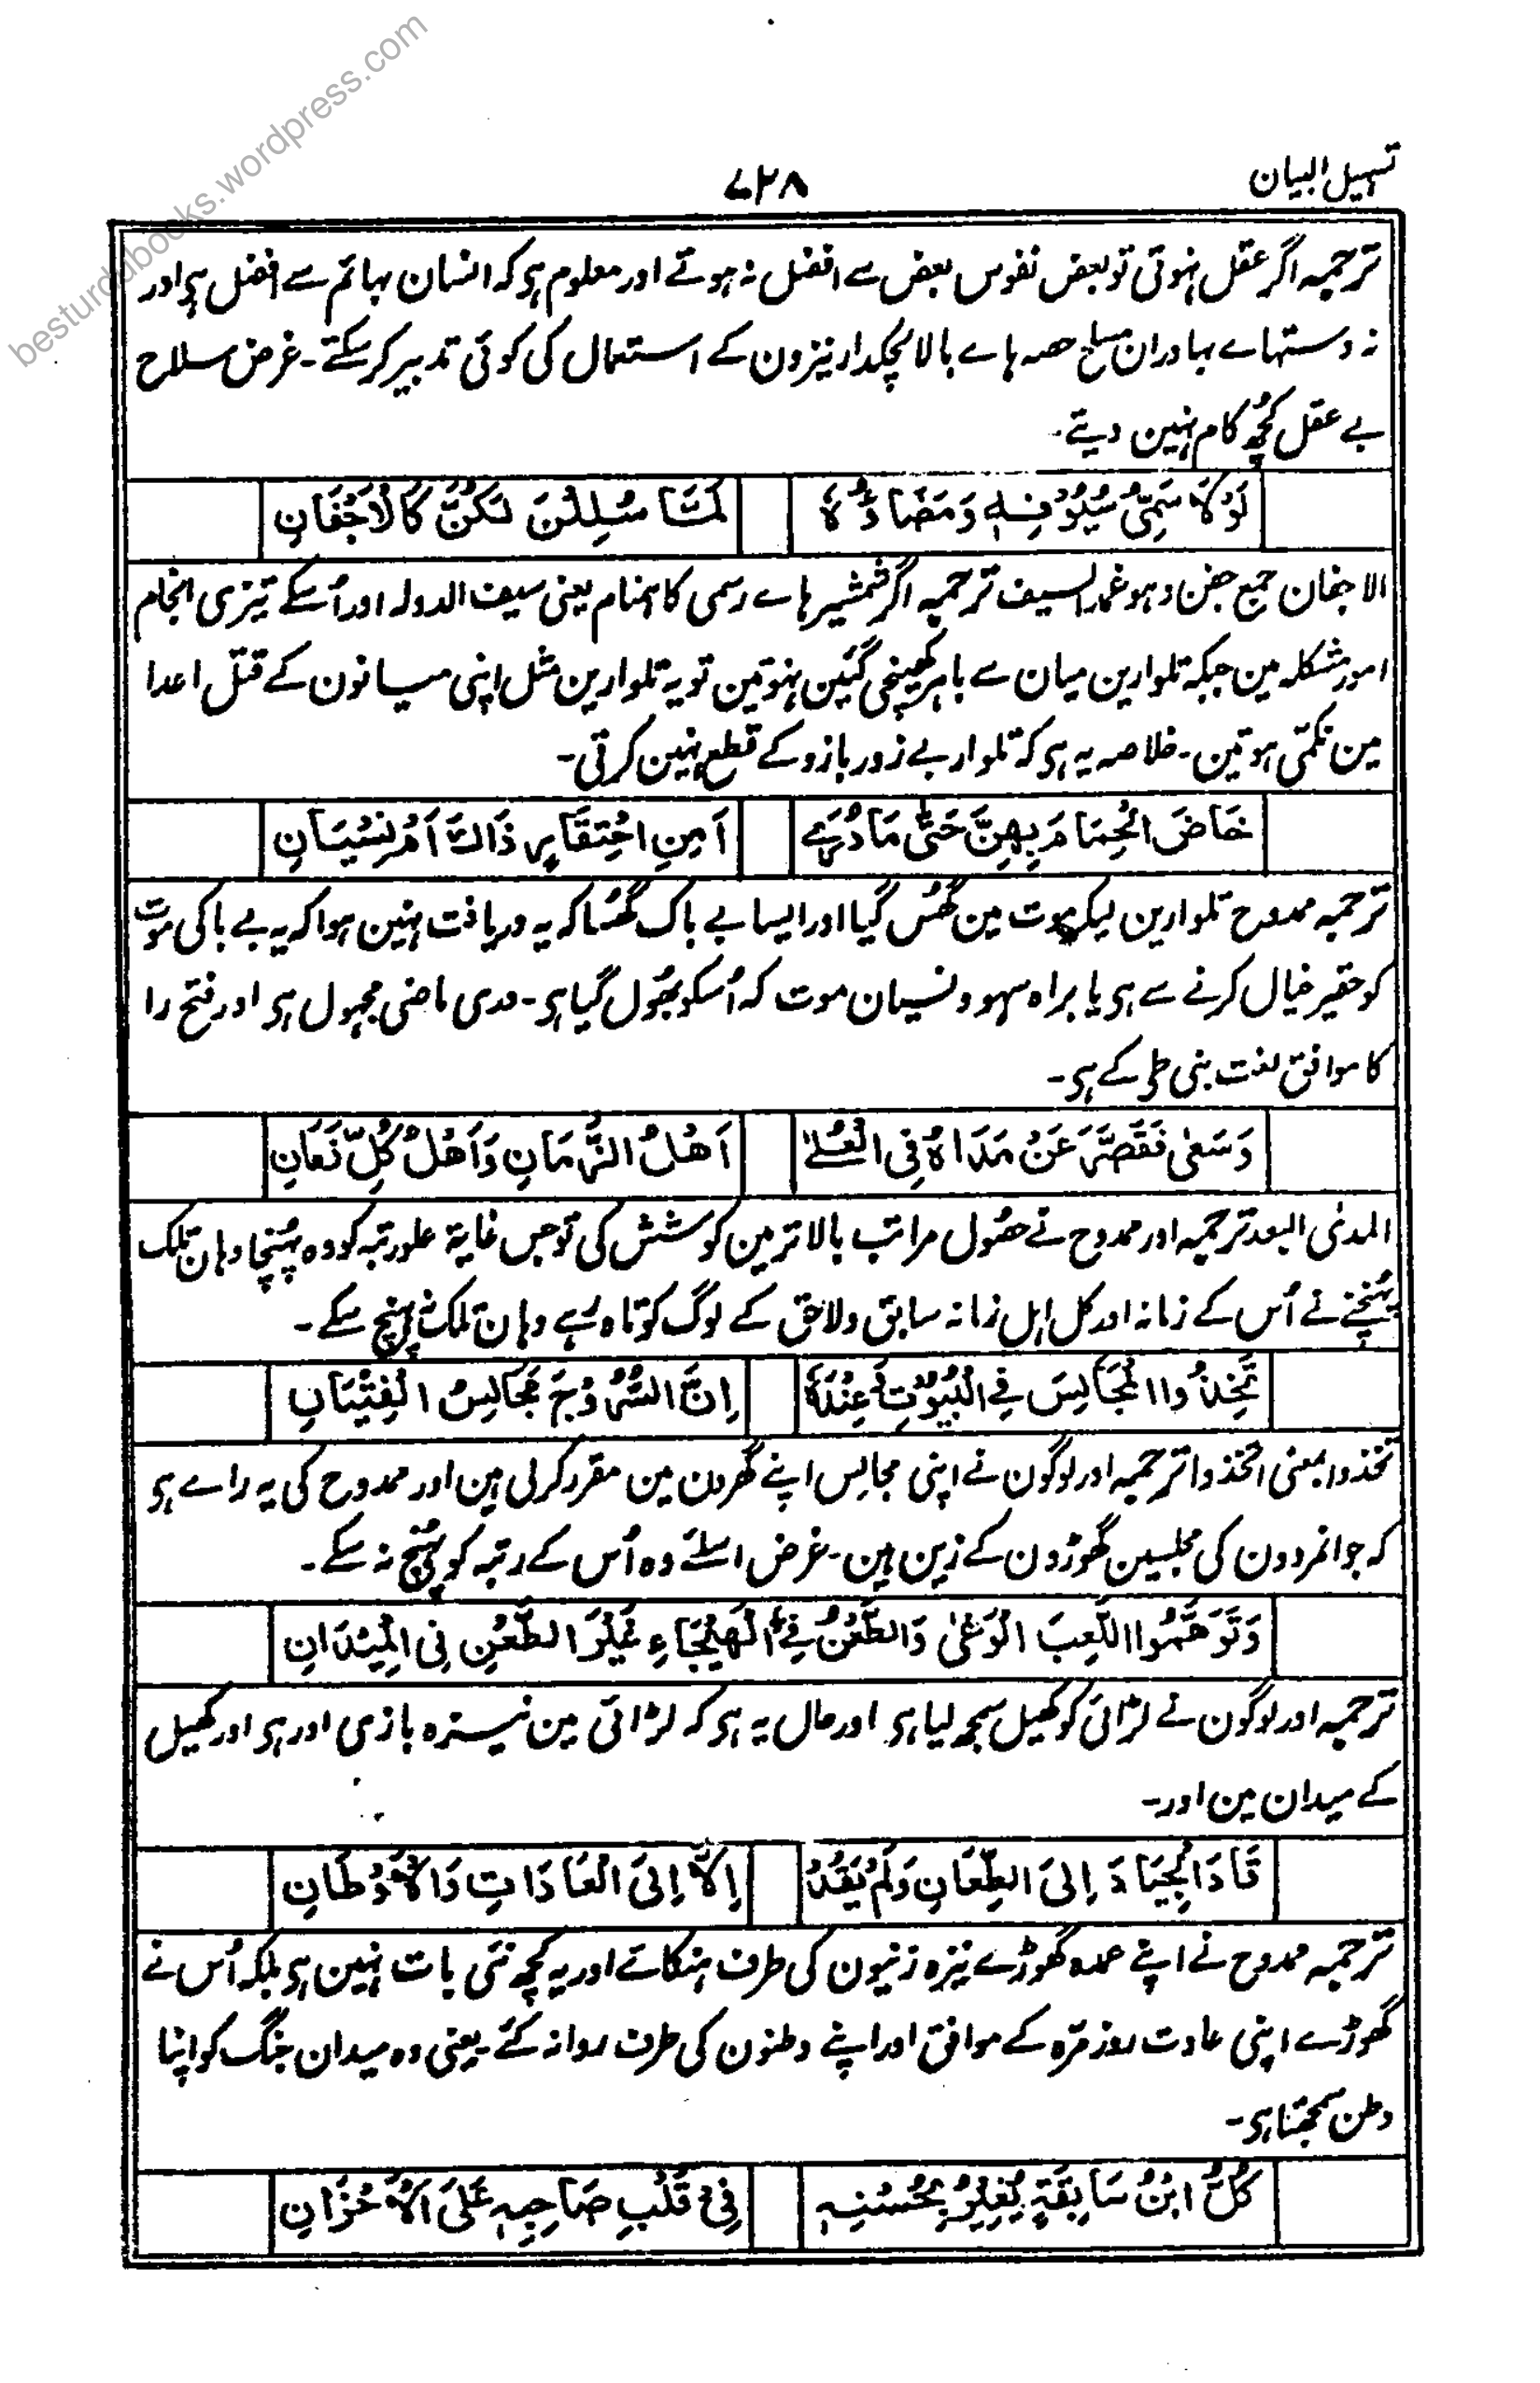 تسہیل البیان
۷۲۸
ترجمہ اگر عقل نہوتی تو بعض نفوس بعض سے افضل نہ ہوتے اور معلوم ہی کہ انسان بہائم سے افضل ہی اور
نہ دستہاے بہادران مسلح حصہ ہاے بالا لچکدار نیزون کے استعمال کی کوئی تدبیر کر سکتے۔ غرض سلاح
بے عقل کُچھ کام نہین دیتے۔
لَوْلَا سَمِىُّ سُيُوْفِهٖ وَمَضَاؤُهٗ لَمَّا سُلِلْنَ لَكُنَّ كَالْاَجْفَانِ
الاجفان جمع جفن وہو غمد السیف ترجمہ اگر شمشیر ہاے رسمی کا ہمنام یعنی سیف الدولہ اور اُسکے تیزی انجام
امور مشکلہ مین جبکہ تلوارین میان سے باہر کھینچی گئین نہوتین تو یہ تلوارین مثل اپنی میانون کے قتل اعدا
مین نکمّی ہوتین۔ خلاصہ یہ ہی کہ تلوار بے زور بازو کے قطع نہین کرتی۔
خَاضَ الْحِمَامَ بِهِنَّ حَتّٰى مَا دُرٰى اَمِنِ احْتِقَارٍ ذَاكَ اَمْ نِسْيَانِ
ترجمہ ممدوح تلوارین لیکر موت مین گھُس گیا اور ایسا بے باک گھُسا کہ یہ دریافت نہین ہوا کہ یہ بے باکی موت
کو حقیر خیال کرنے سے ہی یا براہ سہو و نسیان موت کہ اُسکو بھُول گیا ہی۔ دری ماضی مجہول ہی اور فتح را
کا موافق لغت بنی طی کے ہی۔
وَسَعٰى فَقَصَّرَ عَنْ مَدَاهُ فِى الْعُلٰى اَهْلُ الزَّمَانِ وَاَهْلُ كُلِّ زَمَانِ
المدیٰ البعد ترجمہ اور ممدوح نے حصُول مراتب بالاتر مین کوشش کی تو جس غایۃ علو رتبہ کو وہ پہُنچا وہان تلک
پہُنچنے نے اُس کے زمانہ اور کل اہل زمانہ سابق و لاحق کے لوگ کوتاہ رہے وہان تلک نہ پہنچ سکے۔
تَخِذُوا الْمَجَالِسَ فِى الْبُيُوْتِ وَعِنْدَهٗ اِنَّ السُّرُوْجَ مَجَالِسُ الْفِتْيَانِ
تخذوا بمعنی اتخذوا ترجمہ اور لوگون نے اپنی مجالس اپنے گھرون مین مقرر کر لی ہین اور ممدوح کی یہ راے ہی
کہ جوانمردون کی مجلسین گھوڑون کے زین ہین۔ غرض اسلئے وہ اُس کے رتبہ کو پہُنچ نہ سکے۔
وَتَوَهَّمُوا اللَّعِبَ الْوَغٰى وَالطَّعْنُ فِى الْهَيْجَاءِ غَيْرُ الطَّعْنِ فِى الْمَيْدَانِ
ترجمہ اور لوگون نے لڑائی کو کھیل سمجھ لیا ہی اور حال یہ ہی کہ لڑائی مین نیزہ بازی اور ہی اور کھیل
کے میدان مین اور۔
قَادَ الْجِيَادَ اِلَى الطِّعَانِ وَلَمْ يَقُدْ اِلَّا اِلَى الْعَادَاتِ وَالْاَوْطَانِ
ترجمہ ممدوح نے اپنے عمدہ گھوڑے نیزہ زنیون کی طرف ہنکائے اور یہ کچھ نئی بات نہین ہی بلکہ اُس نے
گھوڑے اپنی عادت روز مرّہ کے موافق اور اپنے وطنون کی طرف روانہ کئے۔ یعنی وہ میدان جنگ کو اپنا
وطن سمجھتا ہی۔
كُلُّ ابْنُ سَابِقَةٍ يُغِيْرُ بِحُسْنِهٖ فِىْ قَلْبِ صَاحِبِهٖ عَلَى الْاَحْزَانِ
besturdubooks.wordpress.com